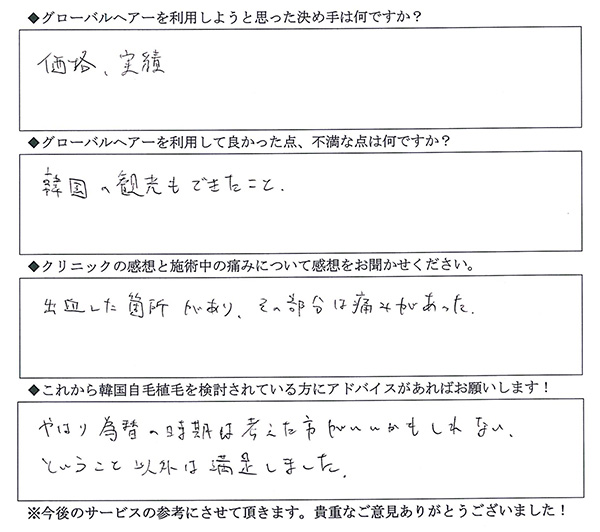 ◆グローバルヘアーを利用しようと思った決め手は何ですか？
価格、実績
◆グローバルヘアーを利用して良かった点、不満な点は何ですか？
韓国の観光もできたこと.
◆クリニックの感想と施術中の痛みについて感想をお聞かせください。
出血した箇所があり、その部分は痛みがあった.
◆これから韓国自毛植毛を検討されている方にアドバイスがあればお願いします！
やはり為替の時期は考えた方がいいかもしれない、
ということ以外は満足しました.
※今後のサービスの参考にさせて頂きます。貴重なご意見ありがとうございました！